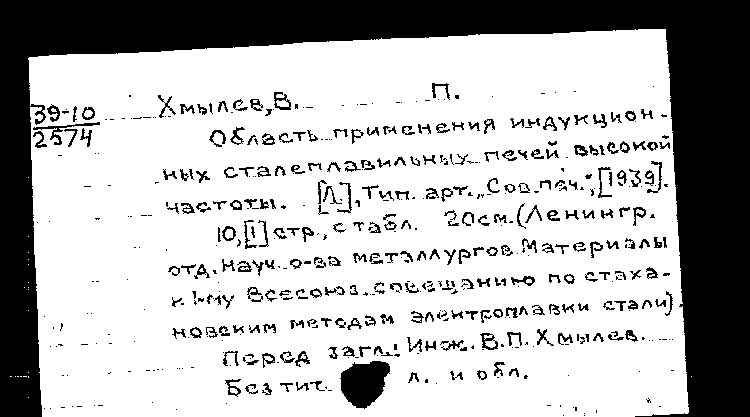 39-10
2574
Хмылев, В. П.
Область применения индукцион-
ных сталеплавильных печей высокой
частоты. [Л.], Тип. арт. „Сов. печ.", [1939].
10, [1] стр., с табл. 20см. (Ленингр.
отд. науч. о-ва металлургов. Материалы
к 1-му Всесоюз. совещанию по стаха-
новским методам электроплавки стали).
Перед загл.: Инж. В.П. Хмылев.
Без тит. л. и обл.